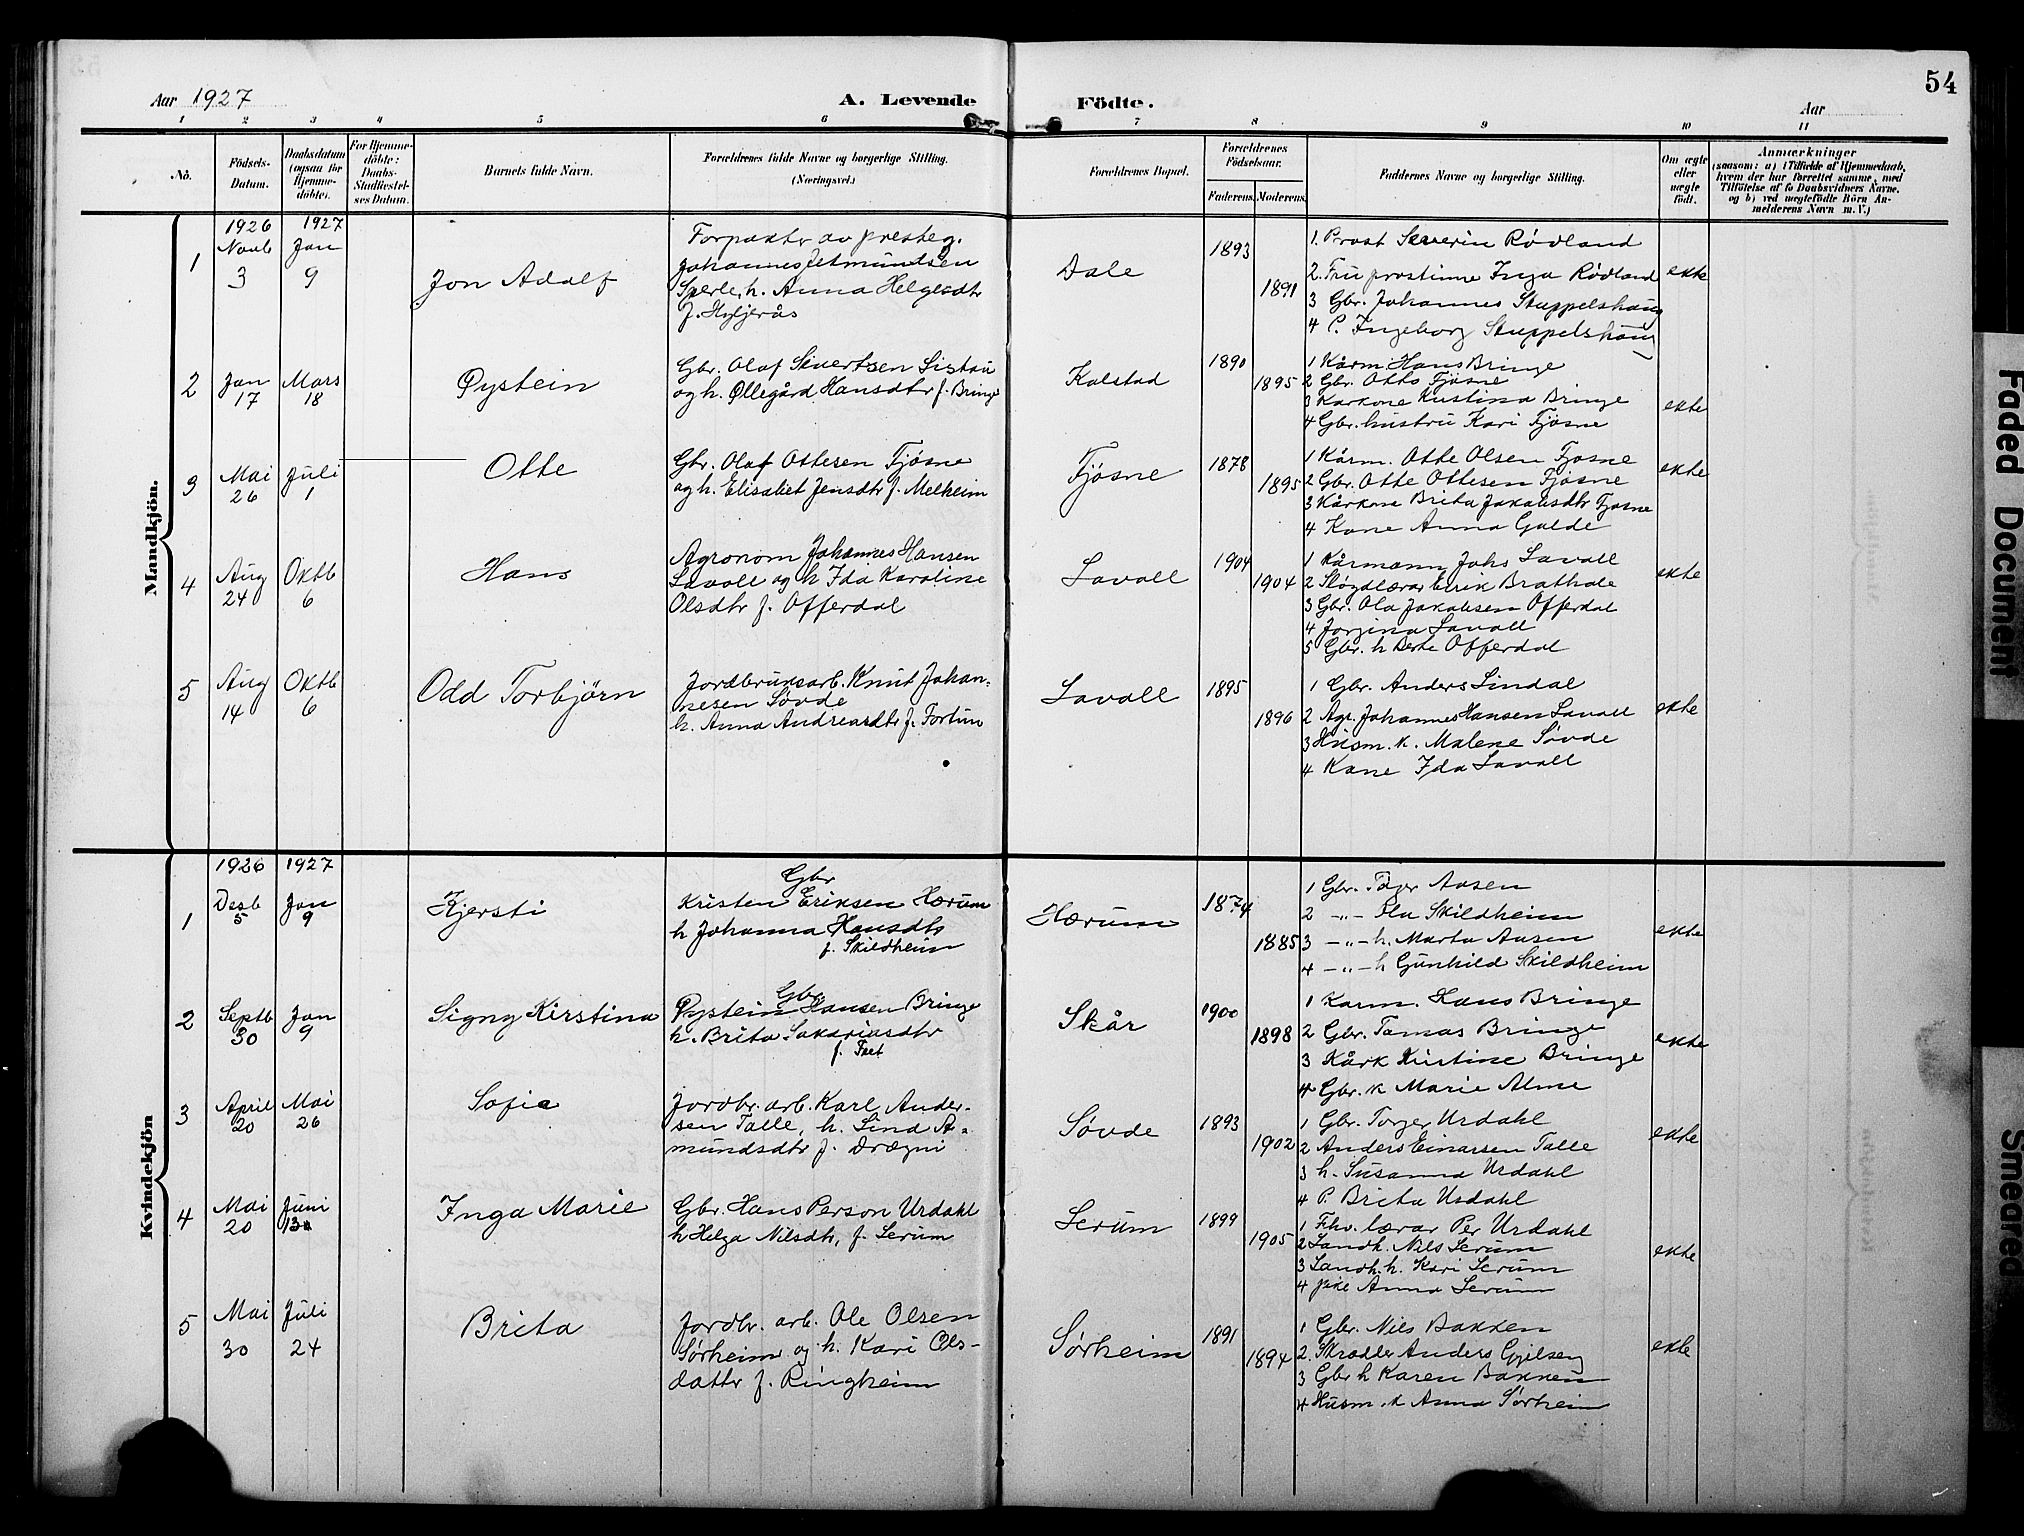 54
Aar 1927
A. Levende Födte.
Aar
1 2 3 4 5 6 7 8 9 10 11
No.
Födsels-Datum.
Daabsdatum (ogsaa for Hjemmedöbte).
For Hjemmedöbte: Daabs-Stadfæstelses Datum.
Barnets fulde Navn.
Forældrenes fulde Navne og borgerlige Stilling.
(Næringsvei.)
Forældrenes Bopæl.
Forældrenes Födselsaar.
Faderens. Moderens.
Faddernes Navne og borgerlige Stilling.
Om ægte eller uægte födt.
Anmærkninger
(saasom: a) i Tilfælde af Hjemmedaab, hvem der har forrettet samme, med Tilföielse af to Daabsvidners Navne. og b) ved uægtefödte Börn Anmelderens Navn m. V.)
Mandkjön.
1926 1927
1 Novb 3 Jan 9
Jon Adolf
Forpakter av presteg.
Johannes Jetmundsen
Sperle, h. Anna Helgesdtr
f. Hyljerås
Dale
1893
1891
1. Prost Severin Rødland
2. Fru prostinne Inga Rødland
3 Gbr. Johannes Skuppelshaug
4 P. Ingeborg Skuppelshaug
ekte
2 Jan 17 Mars 18
Øystein
Gbr. Olaf Sivertsen
og h. Øllegård Hansdtr f. Bringe
Kolstad
1890
1895
1 Kårm. Hans Bringe
2 Gbr. Otto Fjøsne
3 Karkone Kristina Bringe
4 Gbr. hustru Kari Fjøsne
ekte
3 Mai 26 Juli 1
Otte
Gbr. Olaf Ottesen Fjøsne
og h. Elisabet Jensdtr f. Melheim
Fjøsne
1878
1895
1 Kårm. Otte Olsen Fjøsne
2 Gbr. Otte Ottesen Fjøsne
3 Kårkone Brita Jakobsdtr Fjøsne
4 Kone Anna Galde
ekte
4 Aug 24 Oktb 6
Hans
Agronom Johannes Hansen
Lavoll og h Ida Karoline
Olsdtr f. Offerdal
Lavoll
1904
1904
1 Kårmann Johs Lavoll
2 Sløgdlærar Eirik Brathole
3 Gbr. Ola Jakobsen Offerdal
4 Jorgina Lavoll
5 Gbr. h Berte Offerdal
ekte
5 Aug 14 Oktb 6
Odd Torbjørn
Jordbruksarb. Knut Johan-
nesen Søvde
h. Anna Andreasdtr f. Fortun
Lavoll
1895
1896
1 Gbr. Anders Lindal
2 Agr. Johannes Hansen Lavoll
3 Husm. k. Malene Søvde
4 Kone Ida Lavoll
ekte
Kvindekjön
1926 1927
1 Desb 5 Jan 9
Kjersti
Gbr
Kristen Eriksen Hærum
h Johanna Hansdtr
f. Skildheim
Hærum
1874
1885
1 Gbr. Tøger Aasen
2 -"- Ola Skildheim
3 -"- h. Marta Aasen
4 -"- h Gunhild Skildheim
ekte
2 Septb 30 Jan 9
Signy Kirstina
Gbr
Øystein Hansen Bringe
h. Brita Sakariasdtr
f. Fret
Skår
1900
1898
1 Karm. Hans Bringe
2 Gbr. Tomas Bringe
3 Kårk Kristine Bringe
4 Gbr. k Marie Alme
ekte
3 April 20 Mai 26
Sofie
Jordbr. arb. Karl Ander-
sen Talle, h. Lina A-
mundsdtr f. Drægni
Søvde
1893
1902
1 Gbr. Torger Urdahl
2 Anders Einarsen Talle
3 h. Susanna Urdahl
4 P. Brita Urdahl
ekte
4 Mai 20 Juni
Inga Marie
Gbr. Hans Person Urdahl
h Helga Nilsdtr, f. Lerum
Lerum
1899
1905
1 Fhv. lærar Per Urdahl
2 Landh. Nils Lerum
3 Landh. h. Kari Lerum
4 pike Anna Lerum
ekte
5 Mai 30 Juli 24
Brita
Jordbr. arb. Ole Olsen
Sørheim og h. Kari Ols-
dattr f. Ringheim
Sørheim
1891
1894
1 Gbr. Nils Bakken
2. Skrædder Anders
3 Gbr h Karen Bakken
4 Husm. k Anna Sørheim
ekte
Faded Document
Smeared